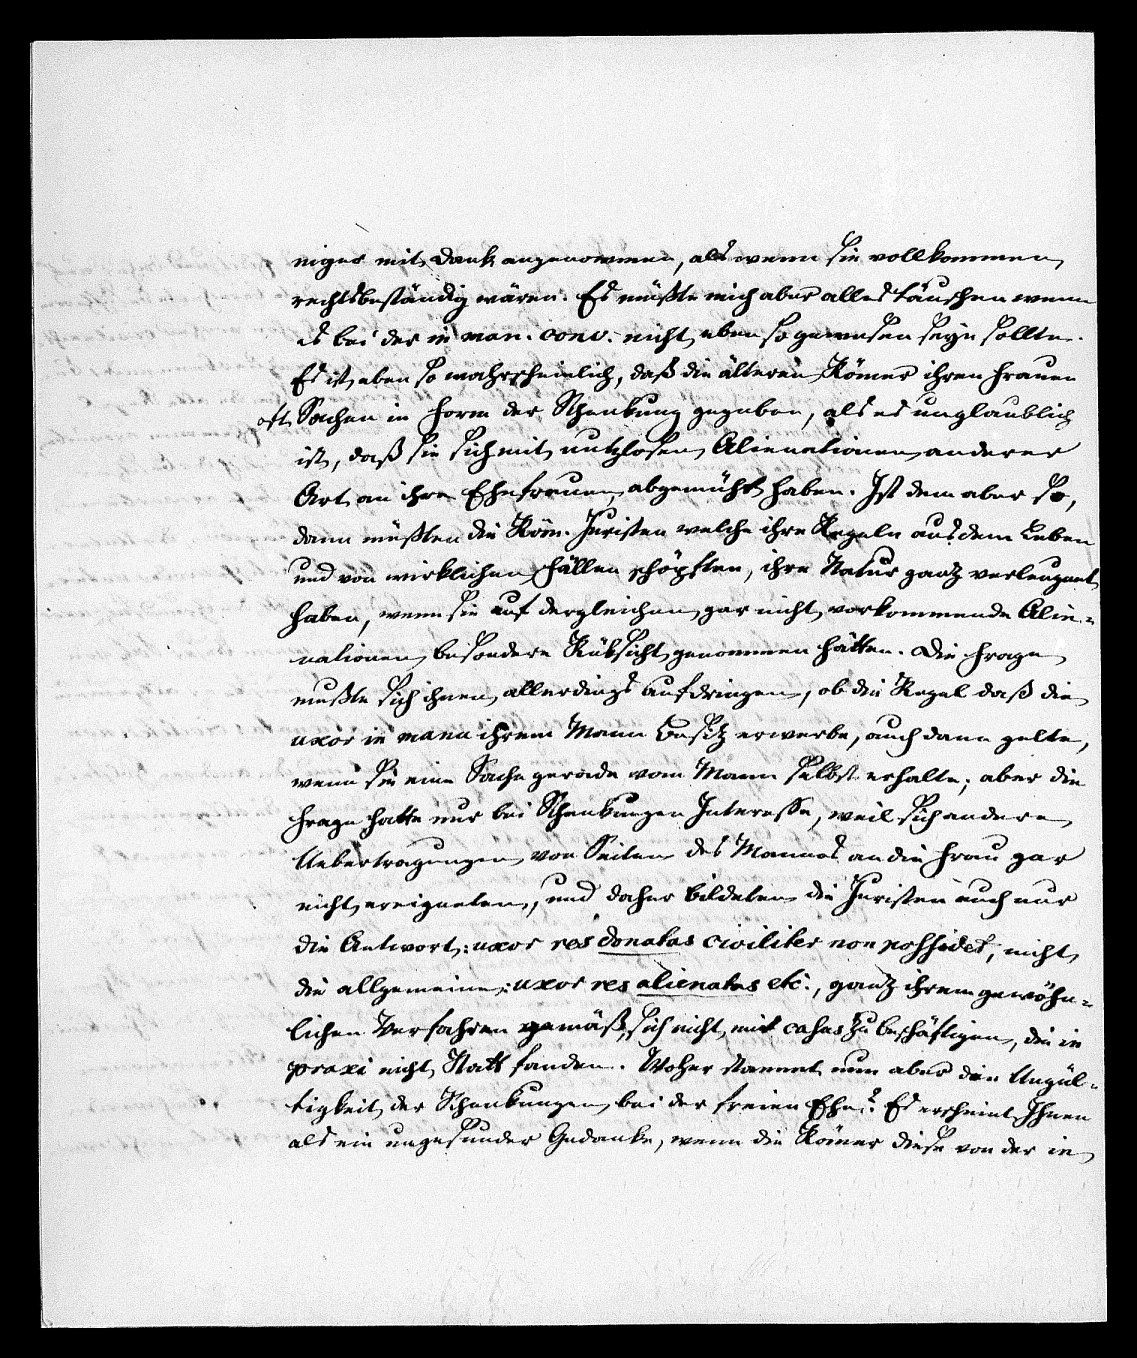 niger mit Dank angenommen, als wenn sie vollkommen
rechtsbeständig wären. Es müßte mich aber alles täuschen wenn
es bei der in man. conv. nicht eben so gewesen seyn sollte.
Es ist eben so wahrscheinlich, daß die älteren Römer ihren Frauen
oft Sachen in Form der Schenkung gegeben, als es unglaublich
ist, daß sie sich mit nutzlosen Alienationen anderer
Art an ihre Ehefrauen abgemüht haben. Ist dem aber so,
dann müßten die Röm. Juristen welche ihre Regeln aus dem Leben
und von wirklichen Fällen schöpften, ihre Natur ganz verleugnet
haben, wenn sie auf dergleichen gar nicht vorkommende Alie-
nationen besondere Rüksicht genommen hätten. Die Frage
mußte sich ihnen allerdings aufdringen, ob die Regel daß die
uxor in manu ihrem Mann Besitz erwerbe, auch dann gelte,
wenn sie eine Sache gerade vom Mann selbst erhalte; aber die
Frage hatte nur bei Schenkungen Interesse, weil sich andere
Uebertragungen von Seiten des Mannes an die Frau gar
nicht ereigneten, und daher bildeten die Juristen auch nur
die Antwort: uxor res donatas civiliter non possidet, nicht
die allgemeine: uxor res alienatas etc., ganz ihrem gewöhn-
lichen Verfahren gemäß, sich nicht mit casus zu beschäftigen, die in
praxi nicht Statt fanden. Woher stammt nun aber die Ungül-
tigkeit der Schenkungen bei der freien Ehe? Es erscheint Ihnen
als ein ungesunder Gedanke, wenn die Römer diese von der in